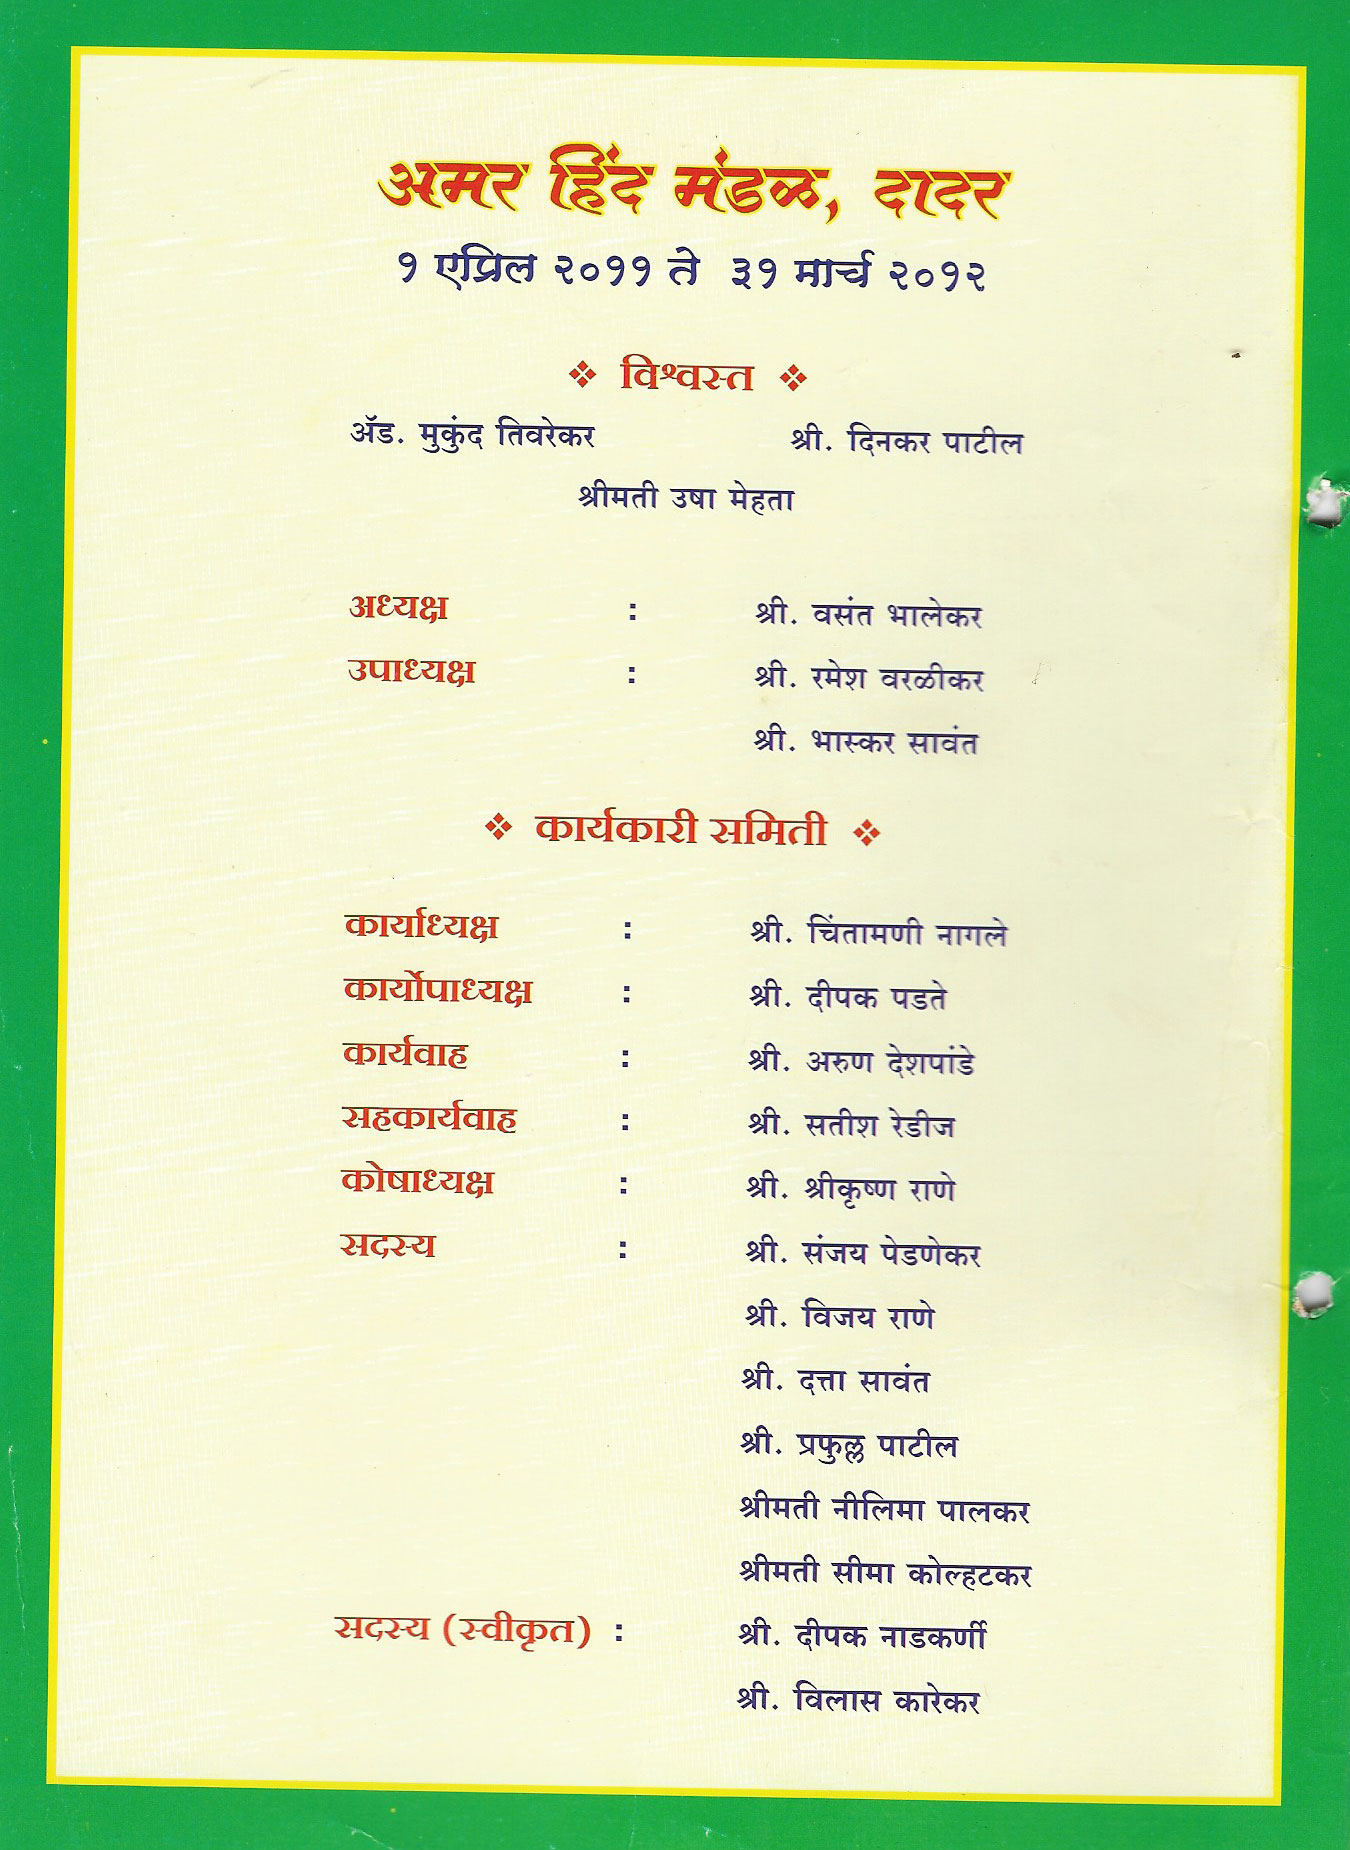 अमर हिंद मंडळ, दादर
१ एप्रिल २०११ ते ३१ मार्च २०१२
❖ विश्वस्त ❖
ॲड. मुकुंद तिवरेकर श्री. दिनकर पाटील
श्रीमती उषा मेहता
अध्यक्ष : श्री. वसंत भालेकर
उपाध्यक्ष : श्री. रमेश वरळीकर
श्री. भास्कर सावंत
❖ कार्यकारी समिती ❖
कार्याध्यक्ष : श्री. चिंतामणी नागले
कार्योपाध्यक्ष : श्री. दीपक पडते
कार्यवाह : श्री. अरुण देशपांडे
सहकार्यवाह : श्री. सतीश रेडीज
कोषाध्यक्ष : श्री. श्रीकृष्ण राणे
सदस्य : श्री. संजय पेडणेकर
श्री. विजय राणे
श्री. दत्ता सावंत
श्री. प्रफुल्ल पाटील
श्रीमती नीलिमा पालकर
श्रीमती सीमा कोल्हटकर
सदस्य (स्वीकृत) : श्री. दीपक नाडकर्णी
श्री. विलास कारेकर